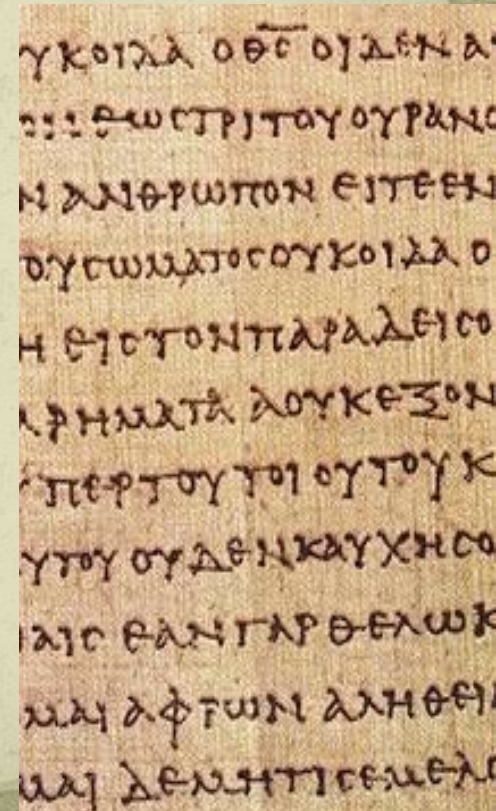 ΥΚΟΙΔΑ Ο Θ̅C̅ ΟΙΔΕΝ Α
ΕΩCΤΡΙΤΟΥ ΟΥΡΑΝΟ
Ν ΑΝΘΡΩΠΟΝ ΕΙΤΕΕΝ
ΟΥCΩΜΑΤΟCΟΥΚΟΙΔΑ Ο
Η ΕΙCΤΟΝΠΑΡΑΔΕΙCΟ
ΑΡΗΜΑΤΑ ΑΟΥΚΕΞΟΝ
ΥΠΕΡΤΟΥΤΟΙΟΥΤΟΥ Κ
ΥΤΟΥ ΟΥΔΕΝΚΑΥΧΗCΟ
ΙΑΙC ΕΑΝΓΑΡ ΘΕΛΩΚ
ΜΑΙ ΑΦΡΩΝ ΑΛΗΘΕΙΑ
ΜΑΙ ΔΕΜΗΤΙCΕΜΕΛΟ